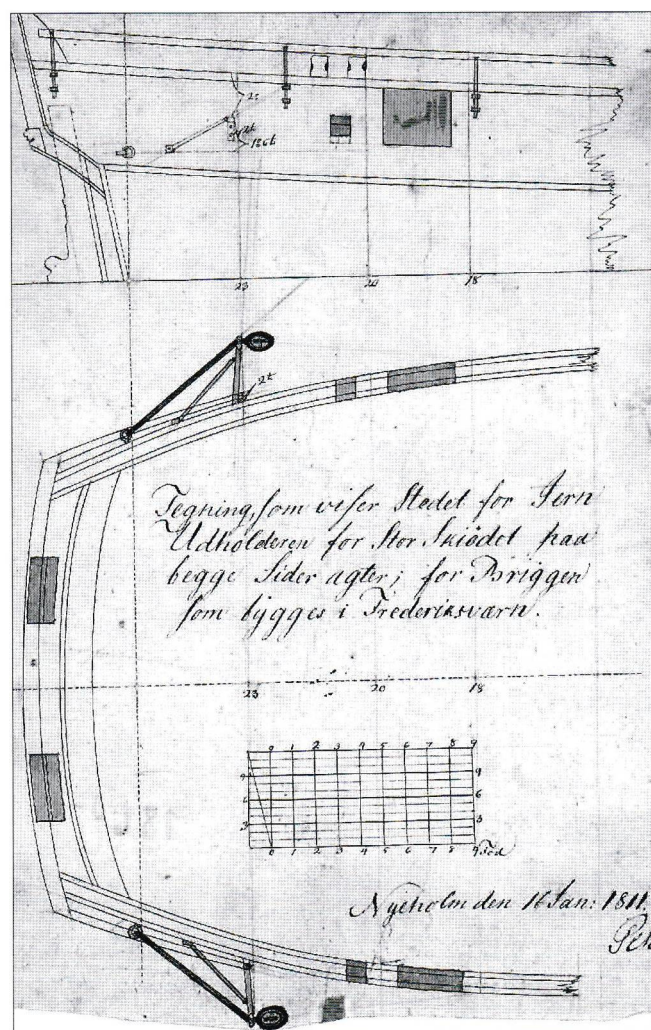 2t
23 20 18
2t
Tegning, som viser Stedet for Jern
Udholderen for Stor Skiödet paa
begge Sider agter; for Briggen
som bÿgges i Frederiksværn.
23 20 18
0 1 2 3 4 5 6 7 8 9
9 9
6 6
3 3
0 1 2 3 4 5 6 7 8 9 Fod
Nyeholm den 16 Jan: 1811.